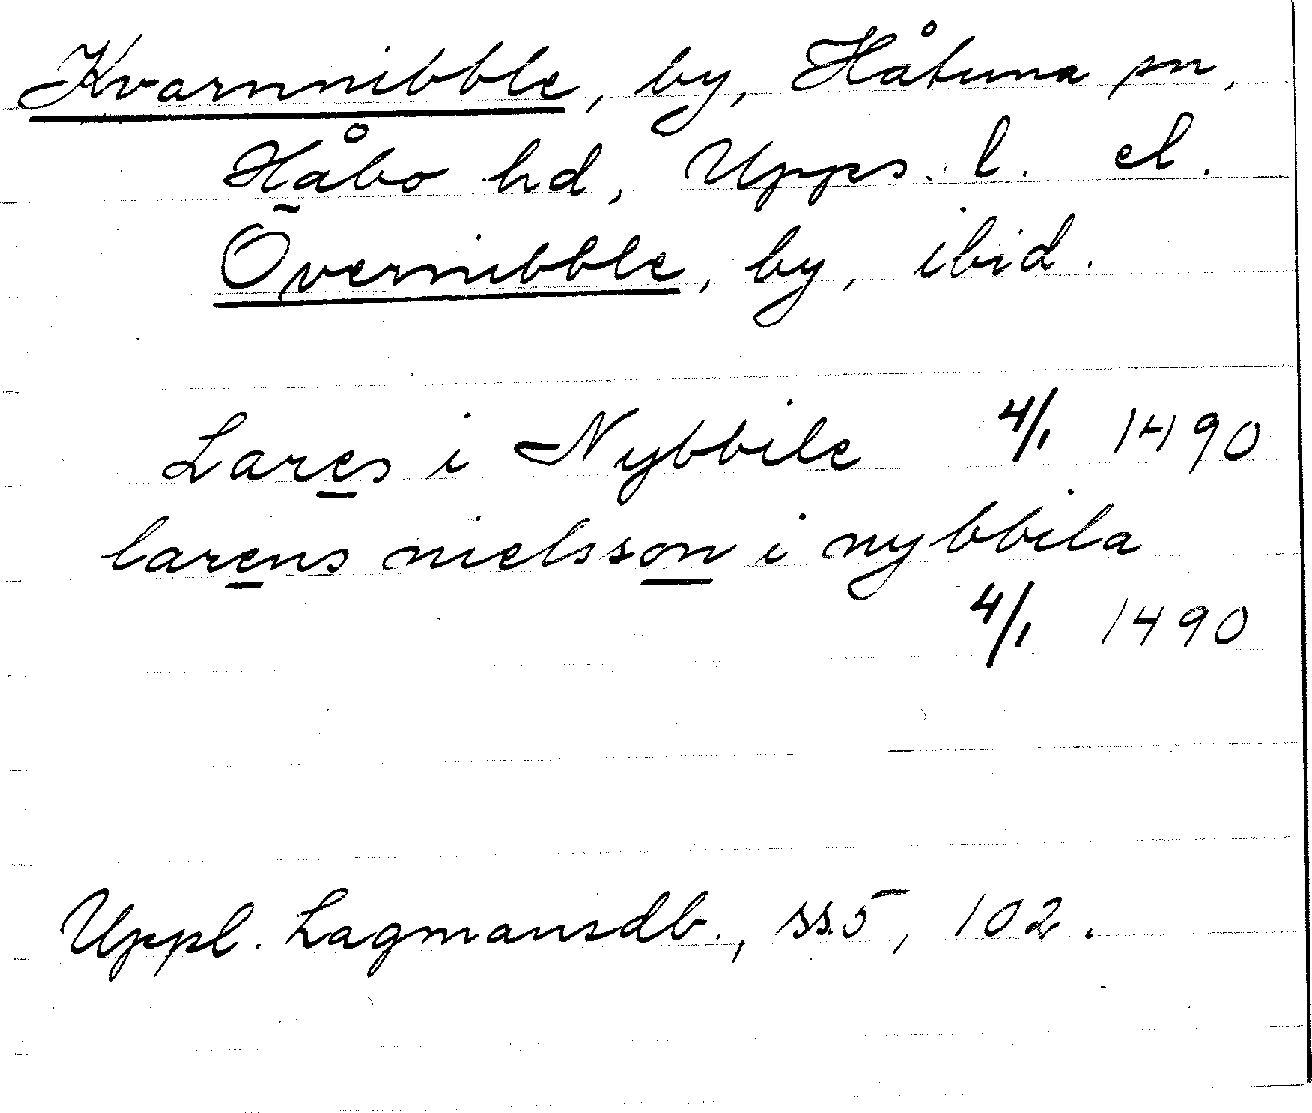 Kvarnnibble, by, Håtuna sn,
Håbo hd, Upps. l. el.
Övernibble, by, ibid.
Lares i Nybbile 4/1 1490
larens nielsson i nybbila
4/1 1490
Uppl. Lagmansdb., ss. 5, 102.